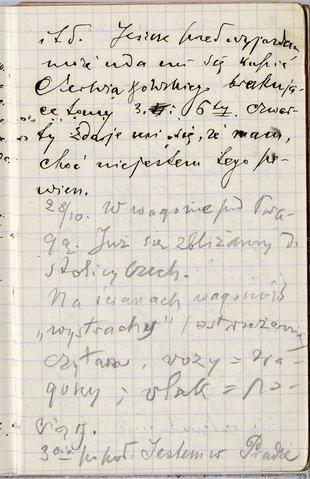 i t d. Jeszcze przed wyjazdem
może uda mi się kupić
brakują-
ce tomy 3. i 6 czwar-
ty zdaje mi się, że mam,
choć nie jestem tego pe-
wien.
28/10. W wagonie pod Pra-
gą. Już się zbliżamy do
stolicy Czech.
Na ścianach wagonów
„wystrachy" / ostrzeżenia
czytam, vozy = wa-
gony; vlak = po-
ciąg.
3cia po poł. Jestem w Pradze